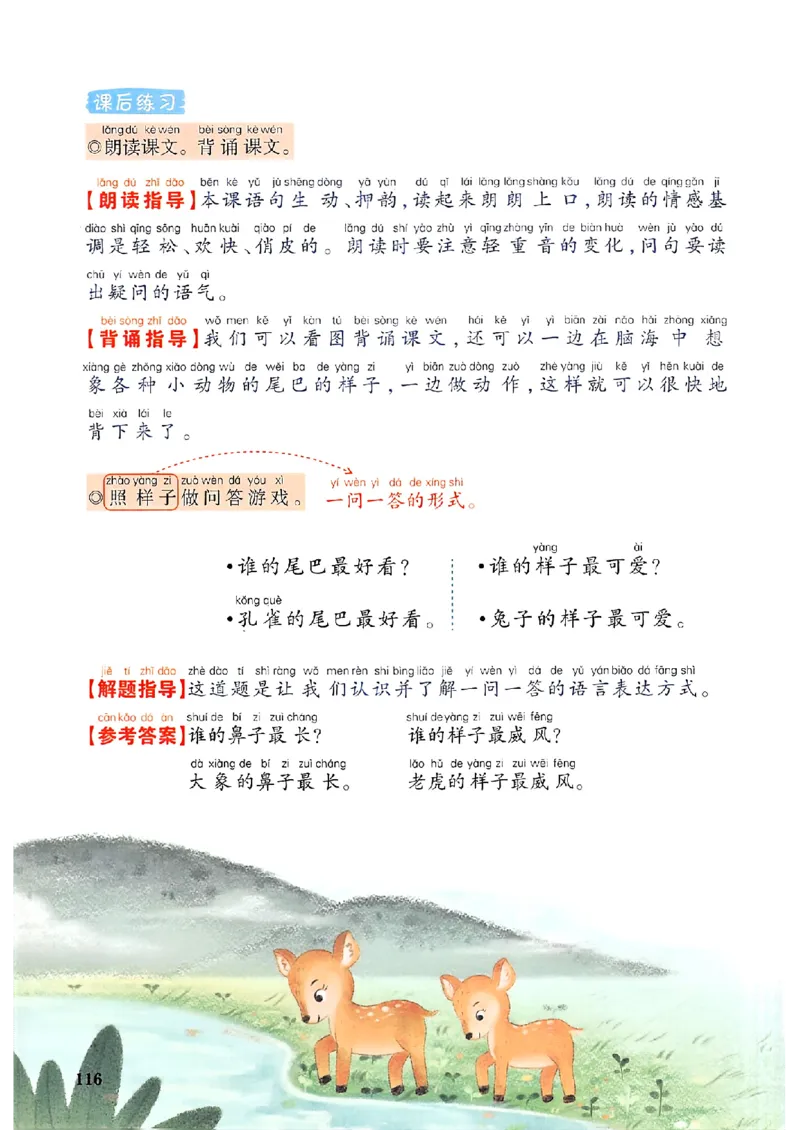 课后练习
lǎng dú kè wén bèi sòng kè wén
◎朗读课文。背诵课文。
lǎng dú zhǐ dǎo běn kè yǔ jù shēng dòng yā yùn dú qǐ lái lǎng lǎng shàng kǒu lǎng dú de qíng gǎn jī
【朗读指导】本课语句生动、押韵,读起来朗朗上口,朗读的情感基
diào shì qīng sōng huān kuài qiào pí de lǎng dú shí yào zhù yì qīng zhòng yīn de biàn huà wèn jù yào dú
调是轻松、欢快、俏皮的。朗读时要注意轻重音的变化,问句要读
chū yí wèn de yǔ qì
出疑问的语气。
bèi sòng zhǐ dǎo wǒ men kě yǐ kàn tú bèi sòng kè wén hái kě yǐ yì biān zài nǎo hǎi zhōng xiǎng
【背诵指导】我们可以看图背诵课文,还可以一边在脑海中想
xiàng gè zhǒng xiǎo dòng wù de wěi ba de yàng zi yì biān zuò dòng zuò zhè yàng jiù kě yǐ hěn kuài de
象各种小动物的尾巴的样子,一边做动作,这样就可以很快地
bèi xià lái le
背下来了。
zhào yàng zi zuò wèn dá yóu xì yí wèn yì dá de xíng shì
◎照样子做问答游戏。 一问一答的形式。
yàng ài
•谁的尾巴最好看? •谁的样子最可爱?
kǒng què
•孔雀的尾巴最好看。 •兔子的样子最可爱。
jiě tí zhǐ dǎo zhè dào tí shì ràng wǒ men rèn shi bìng liǎo jiě yí wèn yì dá de yǔ yán biǎo dá fāng shì
【解题指导】这道题是让我们认识并了解一问一答的语言表达方式。
cān kǎo dá àn shuí de bí zi zuì cháng shuí de yàng zi zuì wēi fēng
【参考答案】谁的鼻子最长? 谁的样子最威风?
dà xiàng de bí zi zuì cháng lǎo hǔ de yàng zi zuì wēi fēng
大象的鼻子最长。 老虎的样子最威风。
116